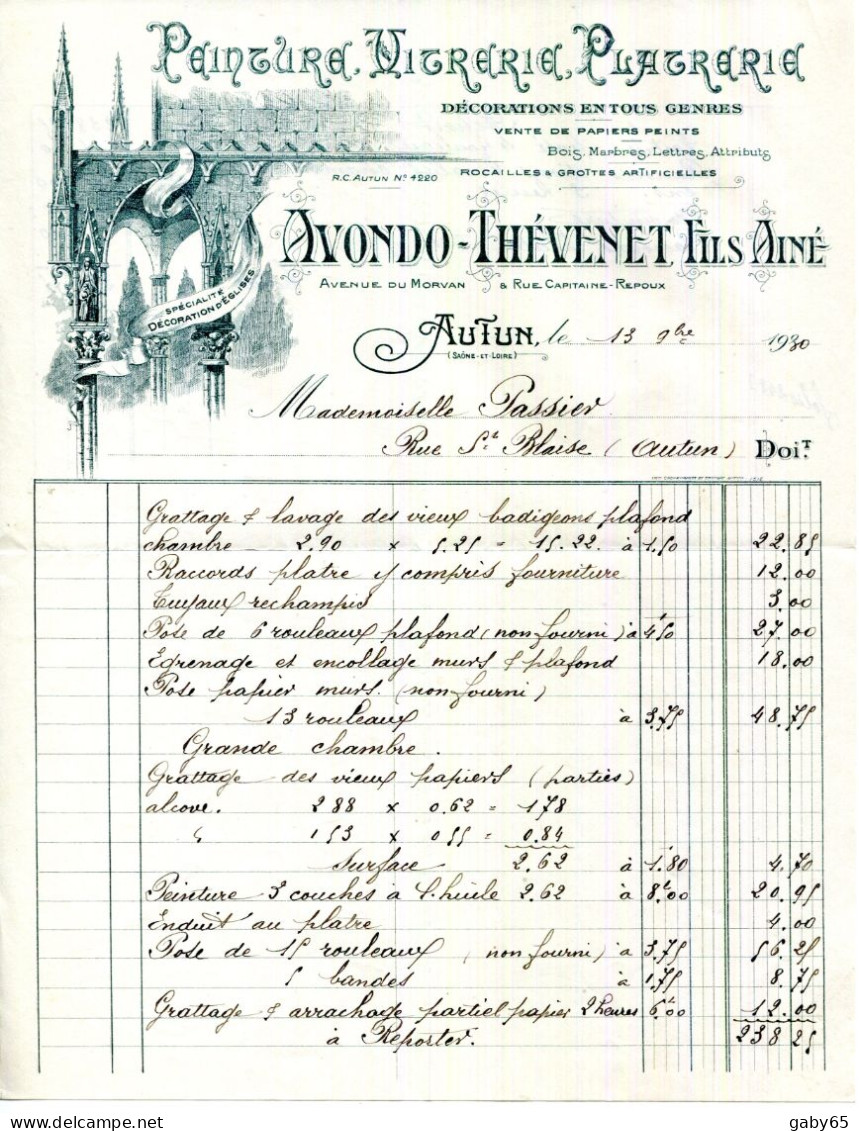 Peinture, Vitrerie, Platrerie
DÉCORATIONS EN TOUS GENRES
VENTE DE PAPIERS PEINTS
Bois, Marbres, Lettres, Attributs
ROCAILLES & GROTTES ARTIFICIELLES
R.C. AUTUN Nº 4220
AVONDO-THÉVENET, FILS AINÉ
AVENUE DU MORVAN & RUE CAPITAINE-REPOUX
SPÉCIALITÉ
DÉCORATION D'ÉGLISES
AUTUN, le 13 9bre 1930
(SAÔNE-ET-LOIRE)
Mademoiselle Passier
Rue St Blaise (Autun) Doit
Grattage & lavage des vieux badigeons plafond
chambre 2.90 x 5.25 = 15.22. à 1.50 22.85
Raccords platre y compris fourniture 12.00
Tuyaux rechampis 3.00
Pose de 6 rouleaux plafond (non fourni) à 4f50 27.00
Egrenage et encollage murs & plafond 18.00
Pose papier murs. (non fourni)
13 rouleaux à 3.75 48.75
Grande chambre.
Grattage des vieux papiers (parties)
alcove. 2.88 x 0.62 = 1.78
" 1.53 x 0.55 = 0.84
Surface 2.62 à 1.80 4.70
Peinture 3 couches à l'huile 2.62 à 8f00 20.95
Enduit au platre 4.00
Pose de 15 rouleaux (non fourni) à 3.75 56.25
5 bandes à 1.75 8.75
Grattage & arrachage partiel papier 2 heures 6f00 12.00
à Reporter. 238.25
gaby65